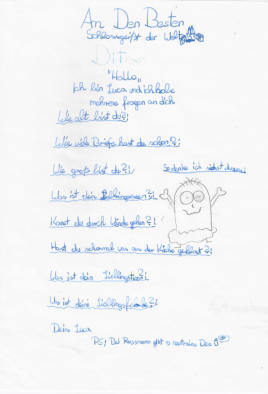 An Den Besten
Schlossgeist der Welt
"Hallo"
Ich bin Luca und ich habe
mehrere fragen an dich
Wie alt bist du?
Wie viele Briefe hast du schon?
Wie groß bist du?
So denke ich siehst du aus!
Was ist dein Lieblingsessen?
Kannst du durch Wände gehen?
Hast du schonmal was aus der Küche geklaut?
Was ist dein Lieblingstier?
Was ist deine Lieblingsfarbe?
Dein Luca
PS! Bei Rossmann gibt es